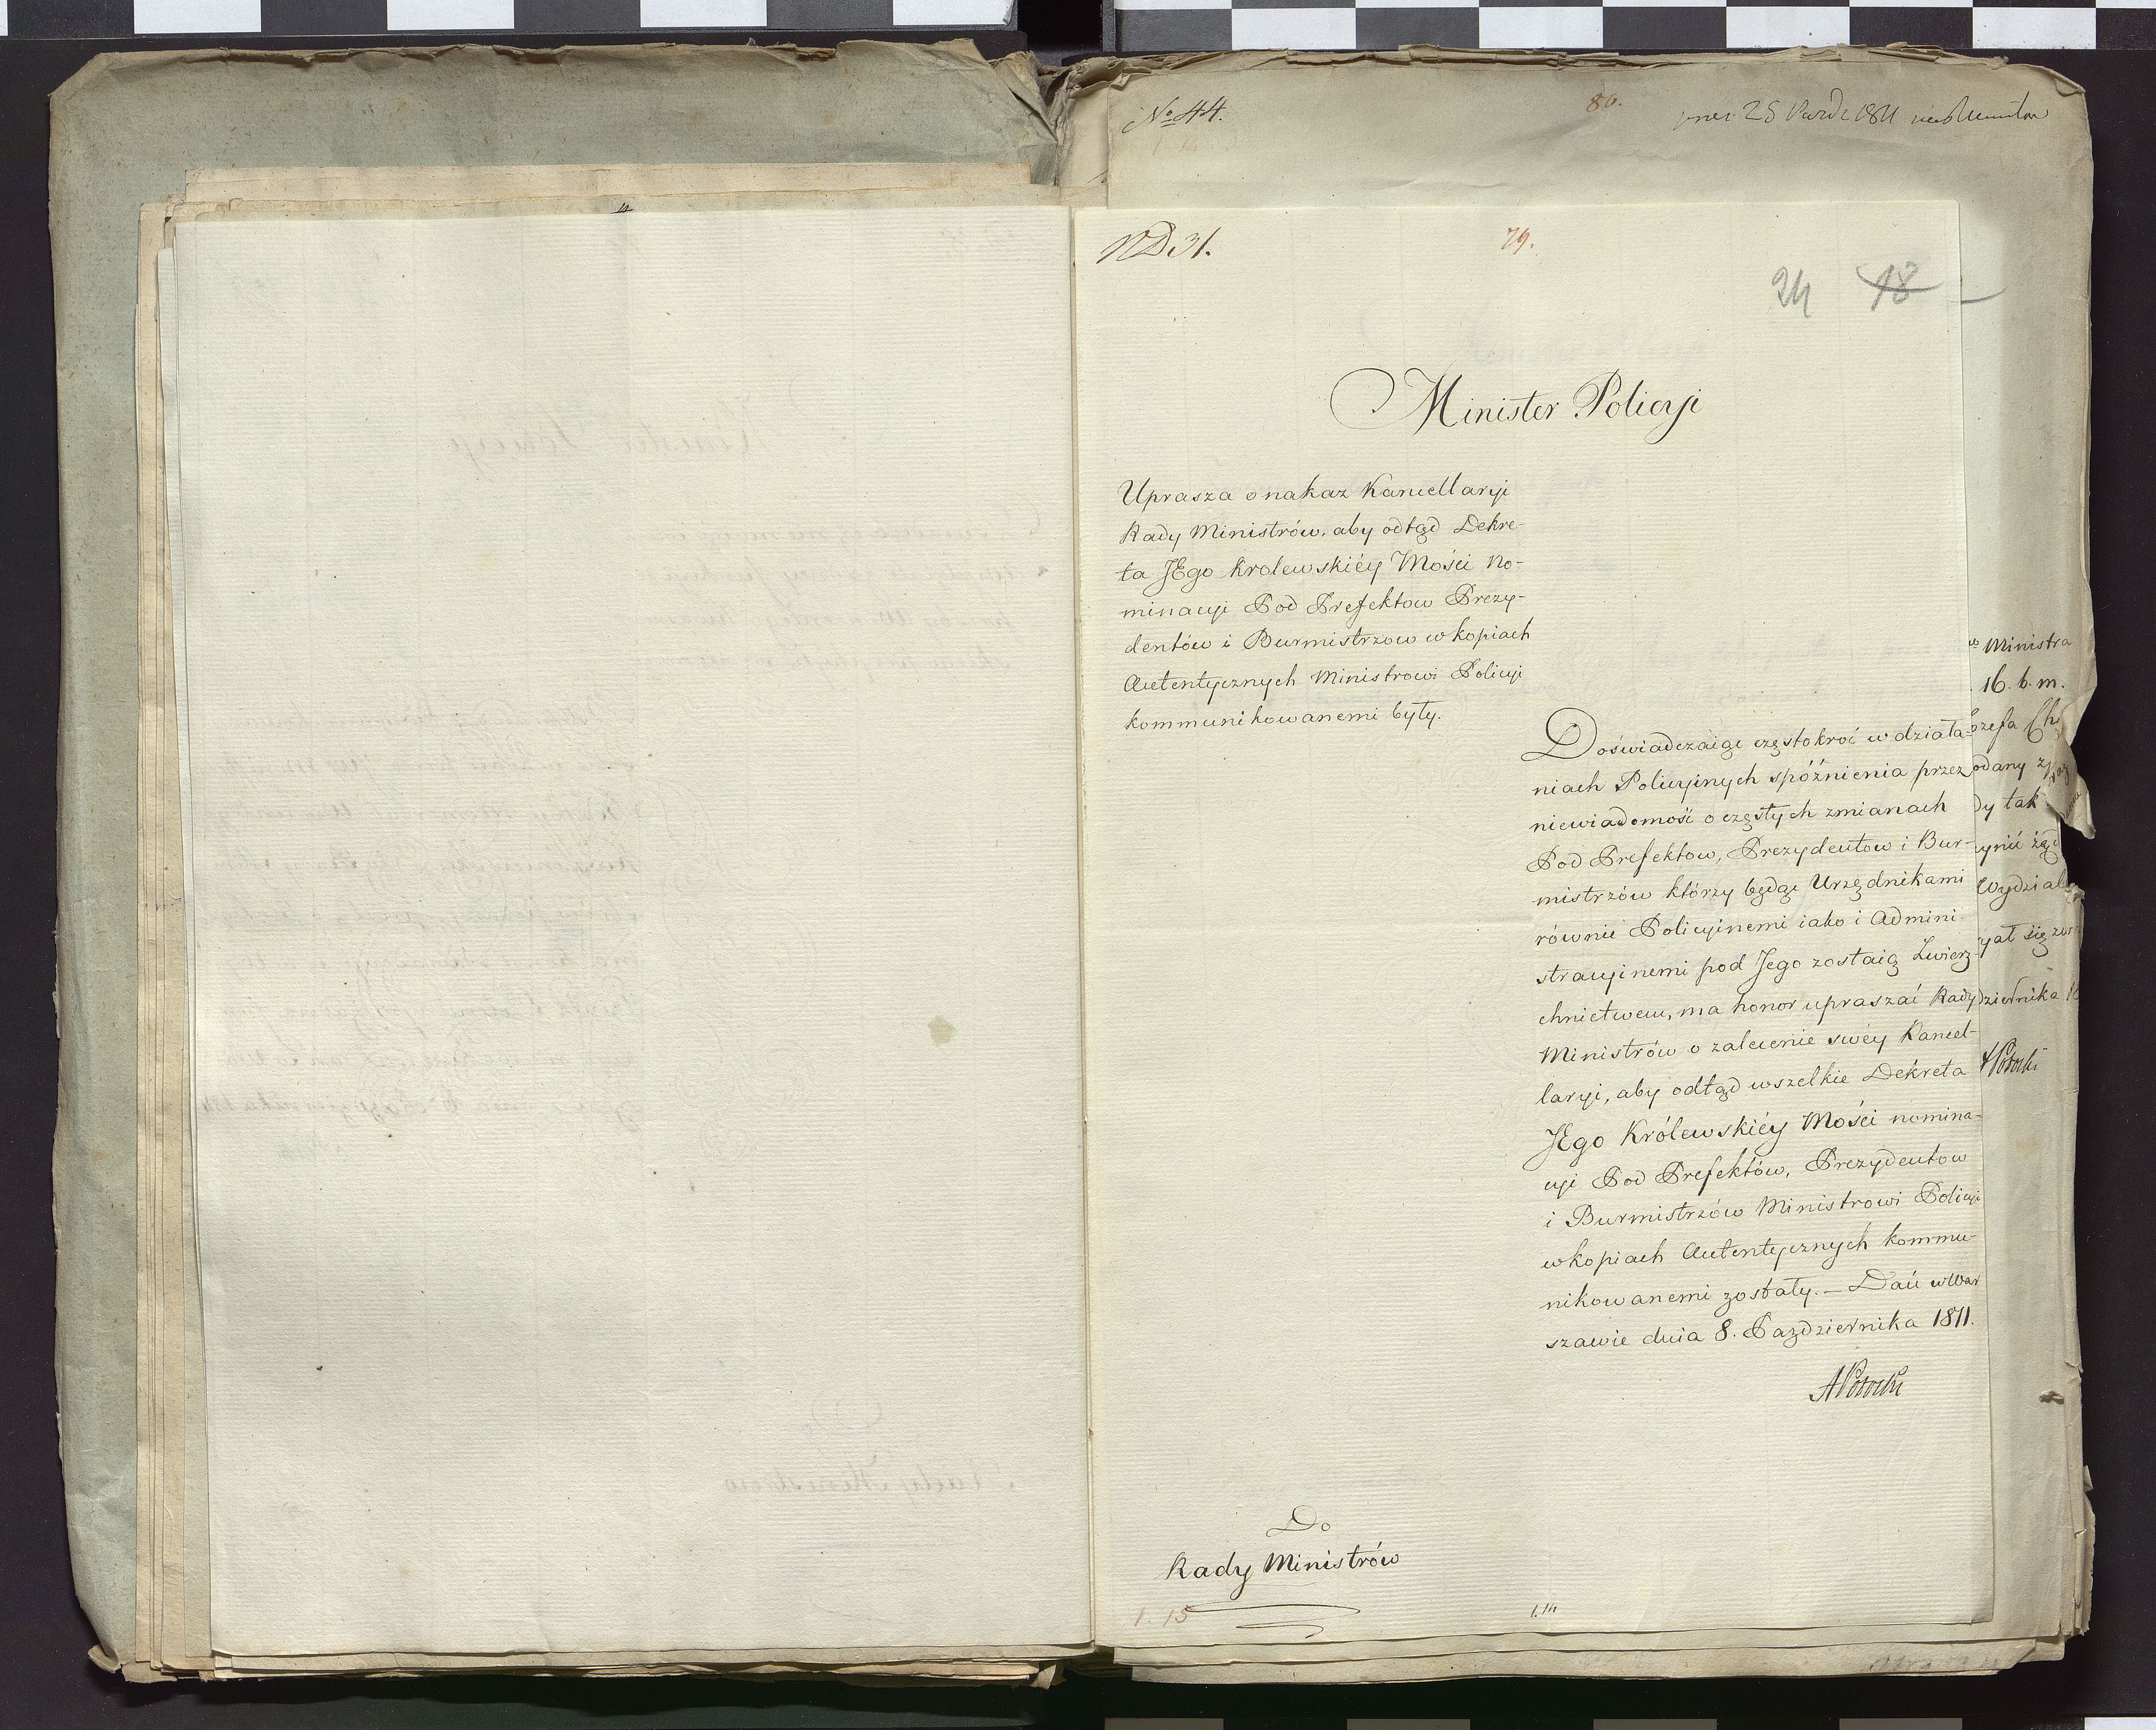 No 44.
80.
25 1811
ND 31.
79.
24 18
Minister Policyi
Uprasza o nakaz Kancellaryi
Rady Ministrów, aby odtąd Dekre-
ta JEgo Krolewskiéy Mości No-
minacyi Pod Prefektow Prezy-
dentów i Burmistrzow w kopiach
Autentycznych Ministrowi Policyi
kommunikowanemi były.
Doświadczaiąc częstokroć w działa-
niach Policyinych spóźnienia przez
niewiadomość o częstych zmianach
Pod Prefektow, Prezydentow i Bur-
mistrzów którzy będąc Urzędnikami
równie Policyinemi iako i Admini-
stracyinemi pod Jego zostaią Zwierz-
chnictwem, ma honor upraszać Rady
Ministrów o zalecenie swéy Kancel-
laryi, aby odtąd wszelkie Dekreta
JEgo Królewskiéy Mości nomina-
cyi Pod Prefektów, Prezydentow
i Burmistrzów Ministrowi Policyi
w kopiach Autentycznych kommu-
nikowanemi zostały. — Dań w War
szawie dnia 8. Pazdziernika 1811.
APotocki
Do
Rady Ministrów
1. 15
1.14
Ministra
16. b. m.
ozefa Ch
odany
dy tak
ynić żąd
Wydział
yał się
dziernika
APotocki